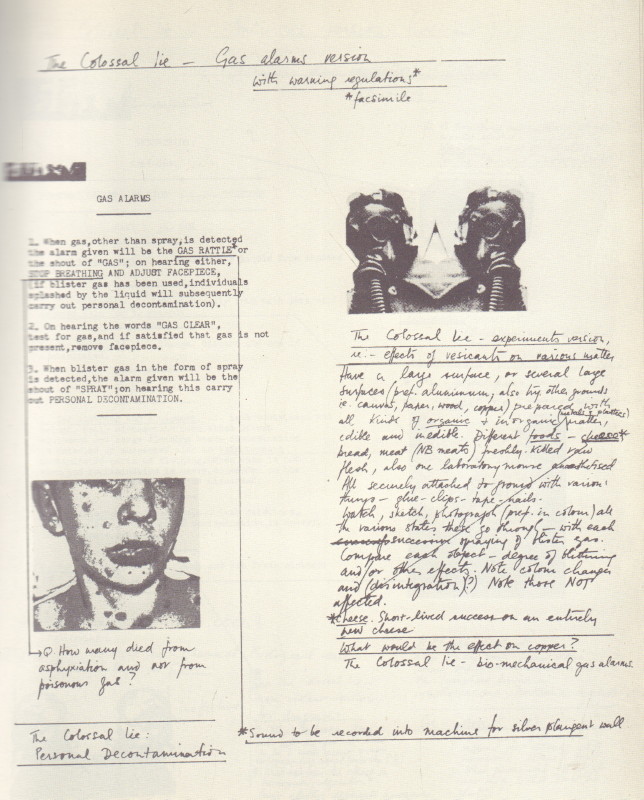 The Colossal lie – Gas alarms version
with warning regulations*
*facsimile
GAS ALARMS
1. When gas,other than spray,is detected
the alarm given will be the GAS RATTLE*or
the shout of "GAS"; on hearing either,
STOP BREATHING AND ADJUST FACEPIECE,
(if blister gas has been used,individuals
splashed by the liquid will subsequently
carry out personal decontamination).
2. On hearing the words "GAS CLEAR",
test for gas,and if satisfied that gas is not
present,remove facepiece.
3. When blister gas in the form of spray
is detected,the alarm given will be the
shout of "SPRAY";on hearing this carry
out PERSONAL DECONTAMINATION.
Q. How many died from
asphyxiation and not from
poisonous gas?
The Colossal lie:
Personal Decontamination
The Colossal lie – experiments version,
re:– effects of vesicants on various matter
Have a large surface, or several large
surfaces (pref. aluminum, also try other grounds
ie. canvas, paper, wood, copper) prepared with
all kinds of organic + inorganic (metals + plastics) matter,
edible and inedible. Different foods – cheese*
bread, meat (NB meats) freshly-killed raw
flesh, also one laboratory mouse anaesthetised
All securely attached to ground with various
things – glue-clips-tape-nails.
Watch, sketch, photograph (pref. in colour) all
the various states these go through – with each
successive spraying of blister gas.
Compare each object – degree of blistering
and/or other effects. Note colour changes
and (disintegration)?) Note those NOT
affected.
*cheese. Short-lived success on an entirely
new cheese
What would be the effect on copper?
The Colossal lie – bio-mechanical gas alarms.
*Sound to be recorded into machine for silver plangent wall